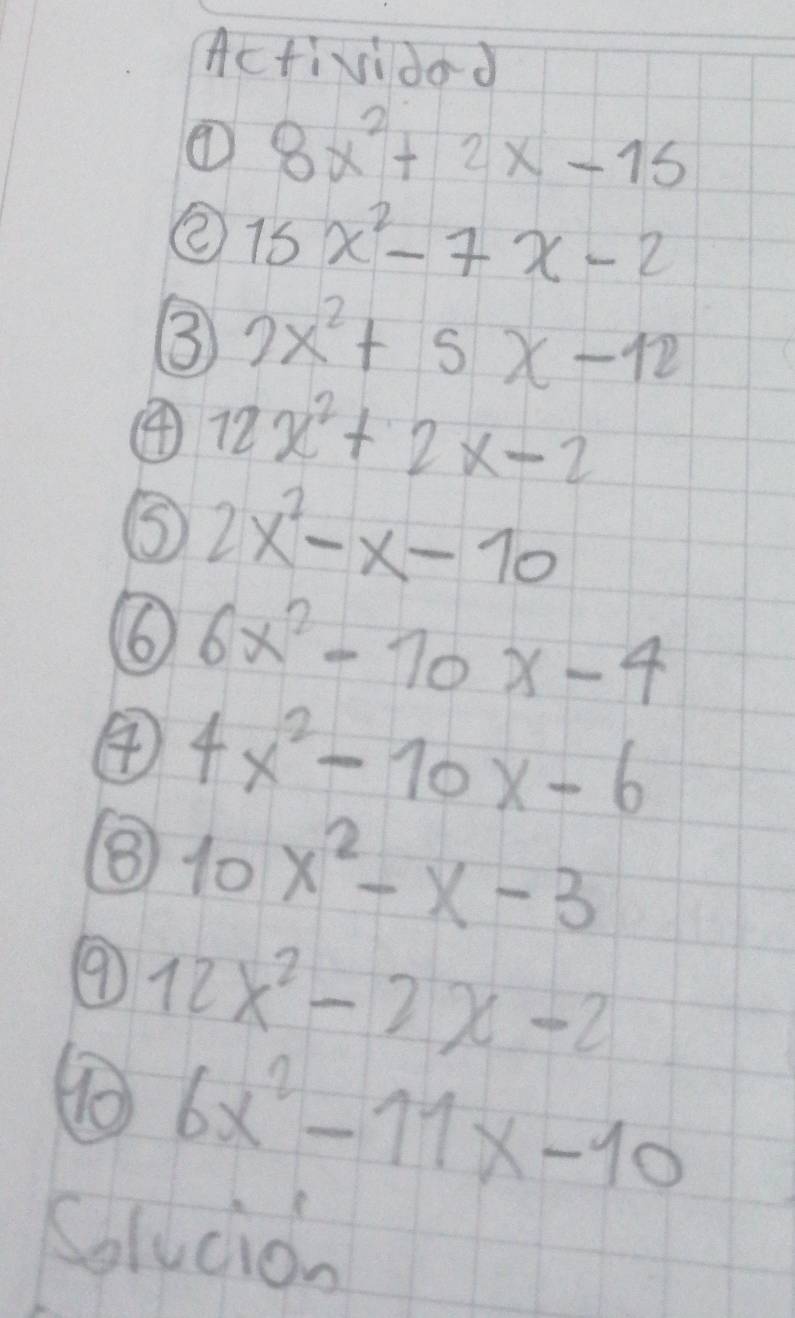 Actividad
① 8x² + 2x - 15
② 15x² - 7x - 2
③ 2x² + 5x - 12
④ 12x² + 2x - 2
⑤ 2x² - x - 10
⑥ 6x² - 10x - 4
⑦ 4x² - 10x - 6
⑧ 10x² - x - 3
⑨ 12x² - 2x - 2
⑩ 6x² - 11x - 10
Solución